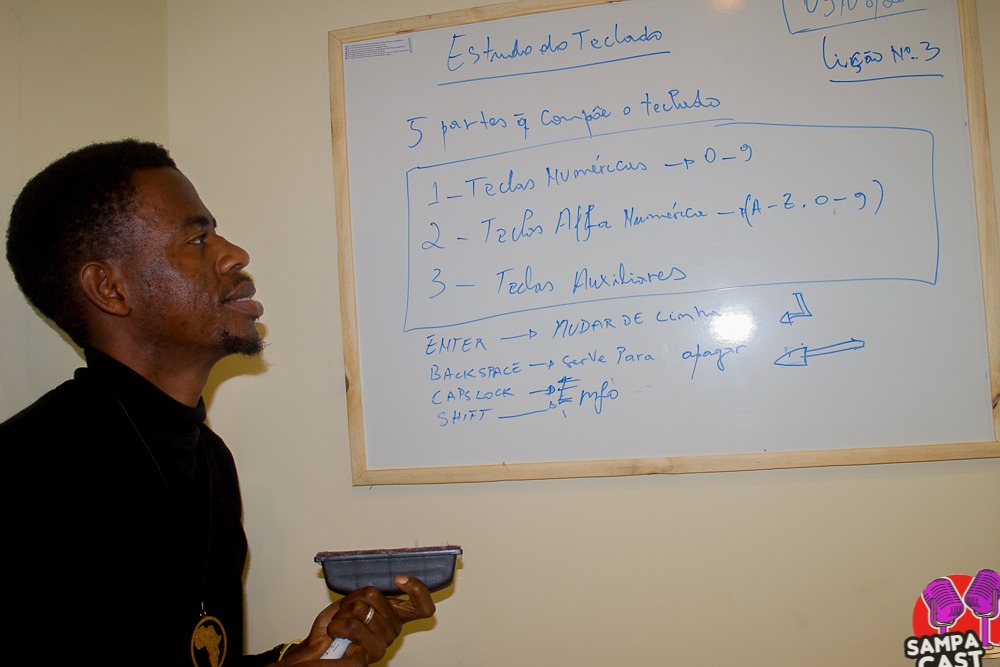 Lição Nº. 3
Estudo do Teclado
5 partes q̃ Compõe o teclado
1 - Teclas Numéricas → 0 - 9
2 - Teclas Alfa Numérica → (A - Z, 0 - 9)
3 - Teclas Auxiliares
ENTER → MUDAR DE Linha
BACKSPACE → Serve Para apagar
CAPSLOCK →
SHIFT
SAMPA
CAST